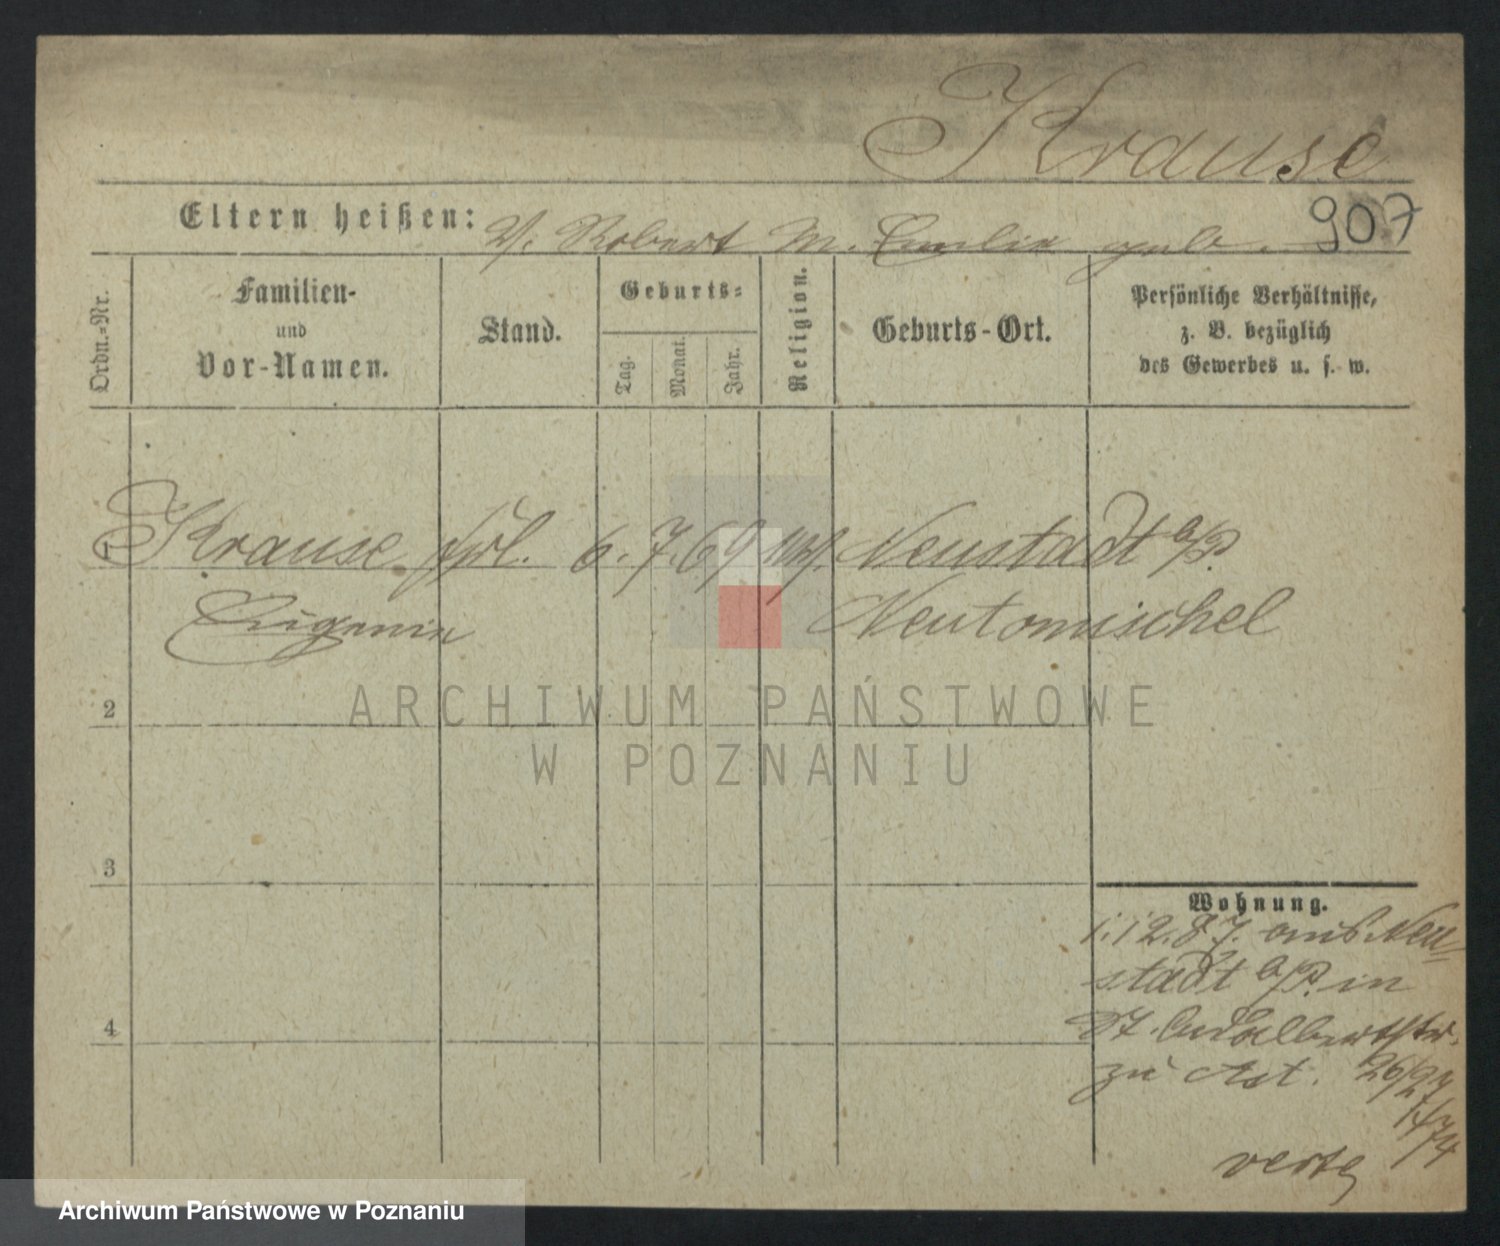 Krause
907
Eltern heißen: V. Robert M. Emilie geb.
Ordn.-Nr.
Familien-
und
Vor-Namen.
Stand.
Geburts-
Tag.
Monat.
Jahr.
Religion.
Geburts-Ort.
Persönliche Verhältnisse,
z. B. bezüglich
des Gewerbes u. s. w.
1 Krause frl. 6. 7. 69 Neustadt a/P.
Eugenie Neutomischel
2
3
4
Wohnung.
1.12.87. aus Neu-
stadt b/P. in
St. Adalbertstr.
zu Ast. 26/27
verte
ARCHIWUM PAŃSTWOWE
W POZNANIU
Archiwum Państwowe w Poznaniu